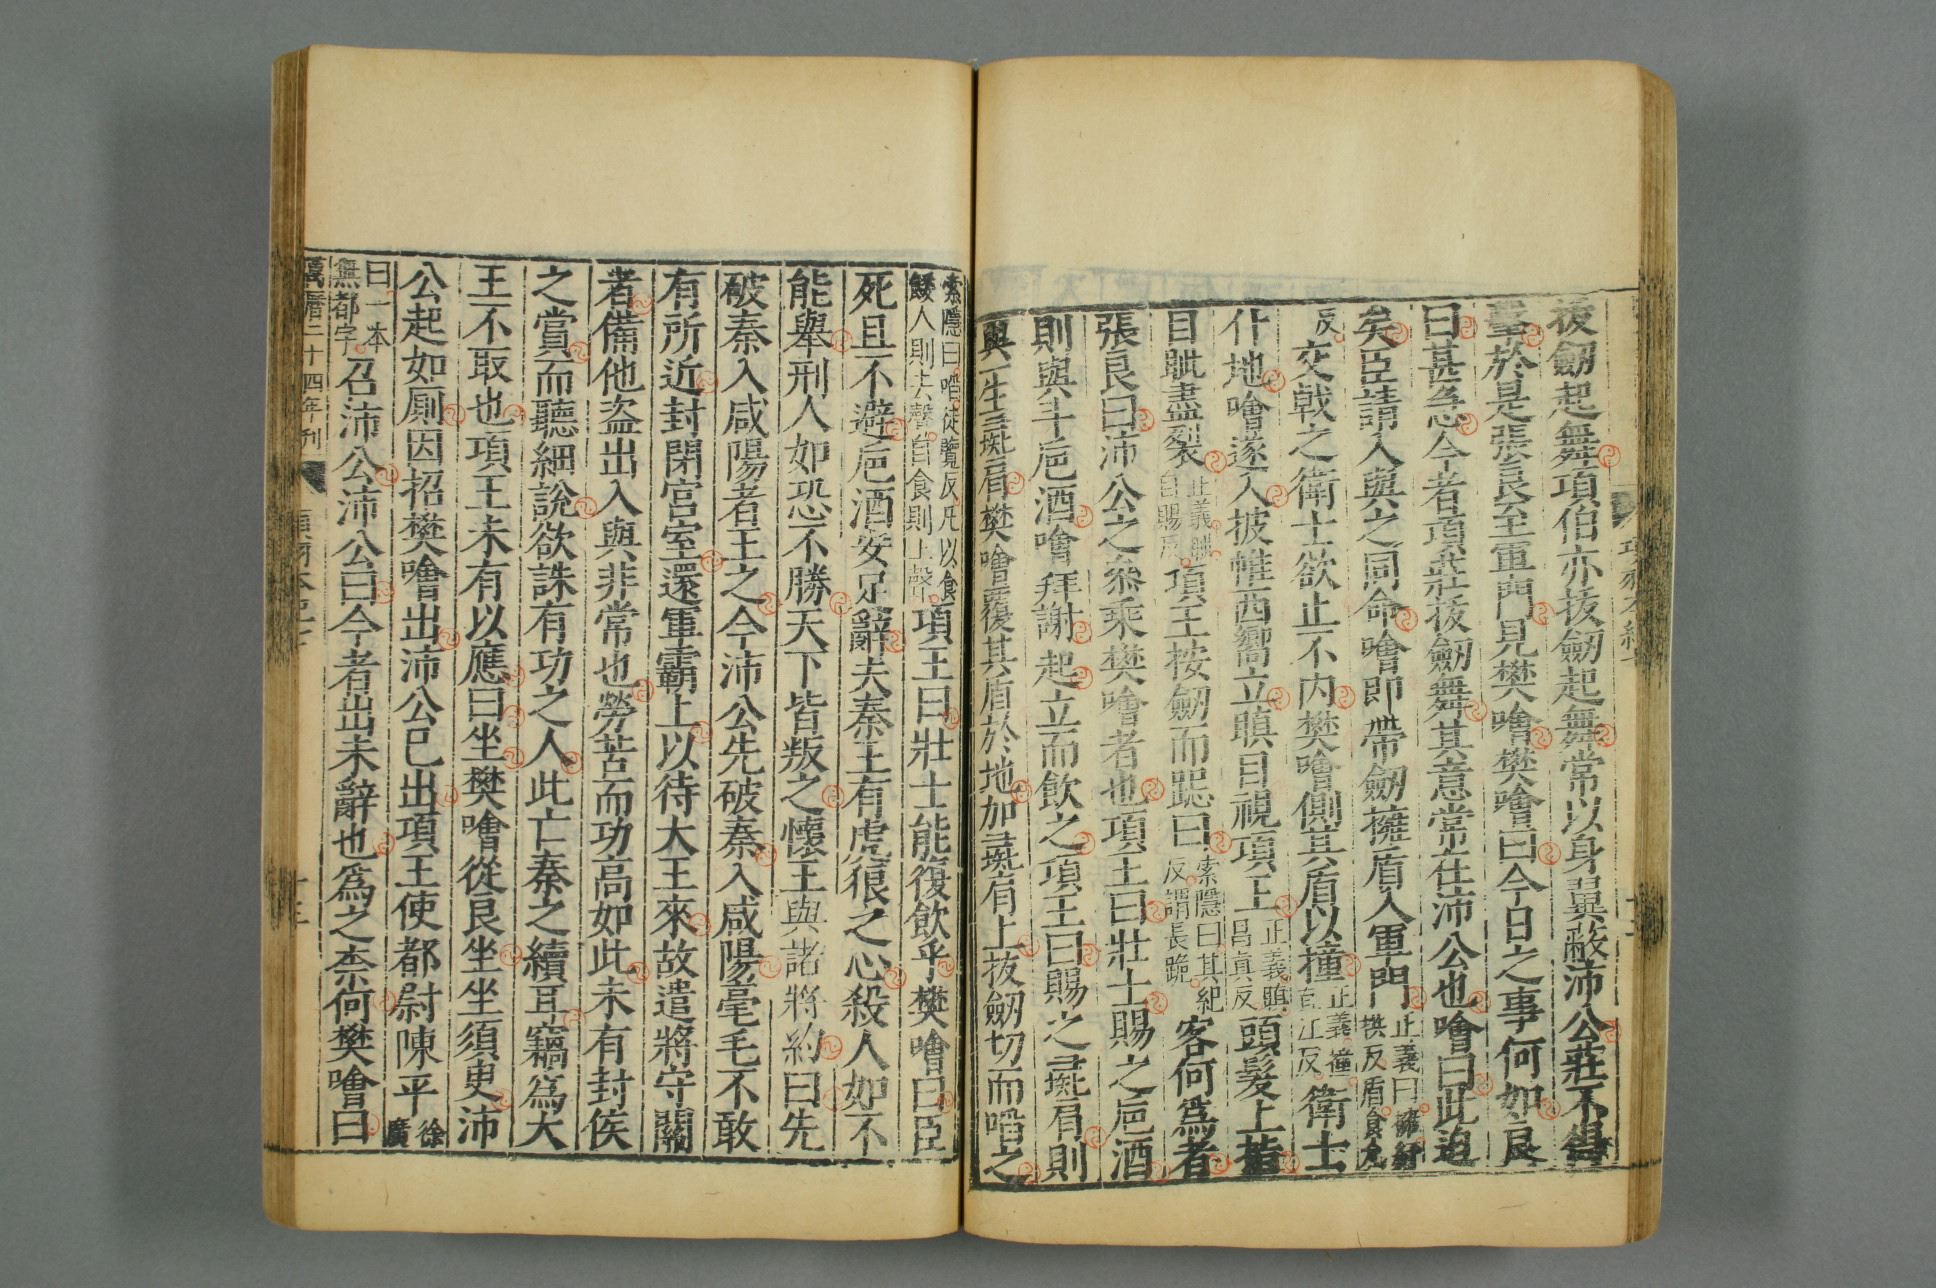 拔劒起舞項伯亦拔劒起舞常以身翼蔽沛公莊不得
擊於是張良至軍門見樊噲樊噲曰今日之事何如良
曰甚急今者項莊拔劒舞其意常在沛公也噲曰此迫
矣臣請入與之同命噲即帶劒擁盾入軍門正義曰擁紆拱反盾食允
反交戟之衛士欲止不内樊噲側其盾以撞正義撞直江反衛士
仆地噲遂入披帷西嚮立瞋目視項王正義瞋昌真反頭髮上指
目眦盡裂正義眦自賜反項王按劒而跽曰索隱曰其紀反謂長跪客何爲者
張良曰沛公之叅乗樊噲者也項王曰壯士賜之巵酒
則與斗巵酒噲拜謝起立而飲之項王曰賜之彘肩則
與一生彘肩樊噲覆其盾於地加彘肩上拔劒切而啗之
索隱曰啗徒覽反凡以食餧人則去聲自食則上聲項王曰壯士能復飲乎樊噲曰臣
死且不避巵酒安足辭夫秦王有虎狼之心殺人如不
能舉刑人如恐不勝天下皆叛之懷王與諸將約曰先
破秦入咸陽者王之今沛公先破秦入咸陽毫毛不敢
有所近封閉宫室還軍霸上以待大王來故遣將守關
者備他盗出入與非常也勞苦而功高如此未有封侯
之賞而聽細說欲誅有功之人此亡秦之續耳竊爲大
王不取也項王未有以應曰坐樊噲從良坐坐須臾沛
公起如廁因招樊噲出沛公已出項王使都尉陳平徐廣
曰一本無都字召沛公沛公曰今者出未辭也爲之柰何樊噲曰
萬曆二十四年刊 項羽本紀七 十三